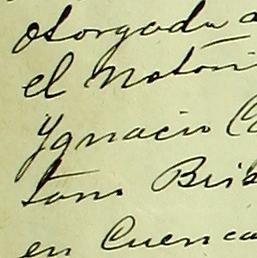 otorgada a
el Notari
Ygnacio C
en Cuenca